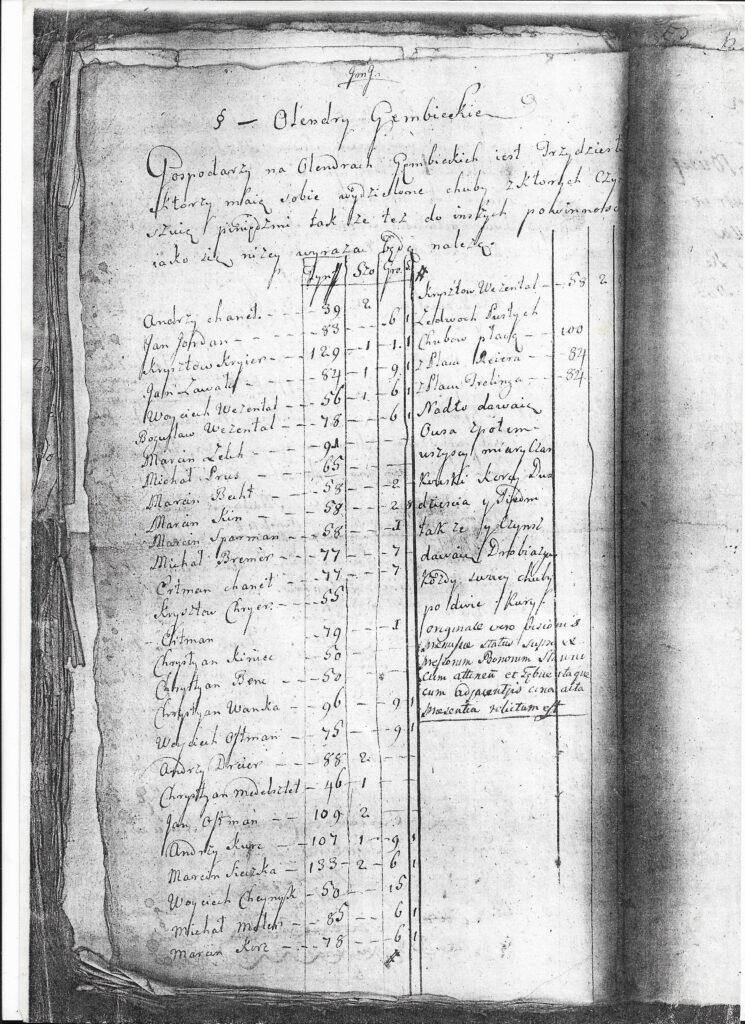 § – Olendry Gembieckie
Gospodarzy na Olendrach Gembieckich jest Trzydziest
ktorzy maią sobie wydzielone chuby z ktorych Czy
szuią piniędzmi tak ze też do inszych powinnosc
iako się niżey wyraza będą należeć.
Tynff Szo Gro. S
Andrzy chanet. – 39 2
Jan Jordan – – 83 – – 6 1
Krysztow Kryier – 129 – 1 – 1. 1
Jan Zawat – – 84 – 1 – 9 1
Woyciech Wezental – 56 – 1 – 6 1
Bogusław Wezental – 78 – – 6 1
Marcin Zelch – – 91
Michał Prus – – 65
Marcin Becht – – 58 – – 2
Marcin Kin – – 58 – – 2
Marcin Sparman – 58 – – 1
Michał Bremer – – 77 – – 7
Ertman chanet – – 77 – – 7
Krysztow Chryer – – 55
Ertman – – 79 – – 1
Chrystyan Kiniec – 50
Chrystyan Benc – – 50
Chrystyan Wanka – – 96 – – 9 1
Woyciech Ostman – – 75 – – 9 1
Andrzy Dreier – – 88 2
Chrystyan Medelsztet – 46 1
Jan Ostman – – 109 2
Andrzy Kurc – – 107 1 – 9 1
Marcin Sieczka – – 133 – 2 – 6 1
Woyciech – 50 – – 15
Michał – – 85 – – 6 1
Marcin Korz – – 78 – – 6 1
Krysztow Wezental – 58 2
Zedwoch Pustych
Chubow płacą – – 100
z Placu Reiera – – 84
z Placu Trelinga – – 84
Nadto dawaią
Owsa zpołem
wszyscy miary Czar
kowski Korcy Dwa
dziescia y Siedm
tak ze y Czynsz
dawaią Drobiazgu
Kożdy swoiey chuby
po dwie Kury
originale vero
status supra ex
Bonorum
cum attinen et
cum adjacentijs
præsentia relictum est